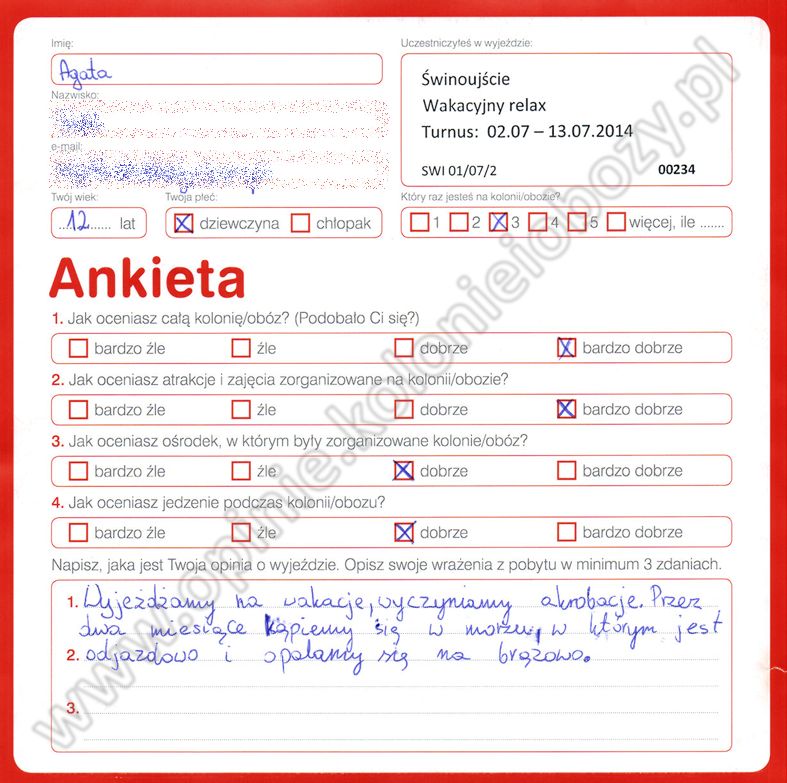 Imię:
Agata
Nazwisko:
e-mail:
Twój wiek:
..12...... lat
Twoja płeć:
dziewczyna chłopak
Uczestniczyłeś w wyjeździe:
Świnoujście
Wakacyjny relax
Turnus: 02.07 – 13.07.2014
SWI 01/07/2 00234
Który raz jesteś na kolonii/obozie?
1 2 3 4 5 więcej, ile .......
Ankieta
1. Jak oceniasz całą kolonię/obóz? (Podobało Ci się?)
bardzo źle źle dobrze bardzo dobrze
2. Jak oceniasz atrakcje i zajęcia zorganizowane na kolonii/obozie?
bardzo źle źle dobrze bardzo dobrze
3. Jak oceniasz ośrodek, w którym były zorganizowane kolonie/obóz?
bardzo źle źle dobrze bardzo dobrze
4. Jak oceniasz jedzenie podczas kolonii/obozu?
bardzo źle źle dobrze bardzo dobrze
Napisz, jaka jest Twoja opinia o wyjeździe. Opisz swoje wrażenia z pobytu w minimum 3 zdaniach.
1. Wyjeżdżamy na wakacje, wyczyniamy akrobacje. Przez
dwa miesiące kąpiemy się w morzu, w którym jest
2. odjazdowo i opalamy się na brązowo.
3.
www.opinie.kolonieiobozy.pl